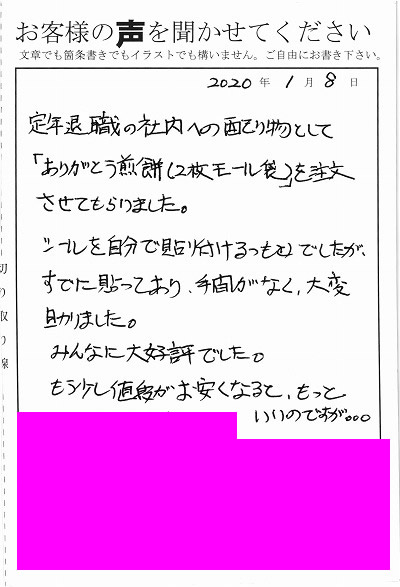 お客様の声を聞かせてください
文章でも箇条書きでもイラストでも構いません。ご自由にお書き下さい。
2020年 1月 8日
定年退職の社内への配り物として
「ありがとう煎餅(2枚モール袋)」を注文
させてもらいました。
シールを自分で貼り付けるつもりでしたが、
すでに貼ってあり、手間がなく、大変
助かりました。
みんなに大好評でした。
もう少し値段がお安くなると、もっと
いいのですが。。。
切り取り線